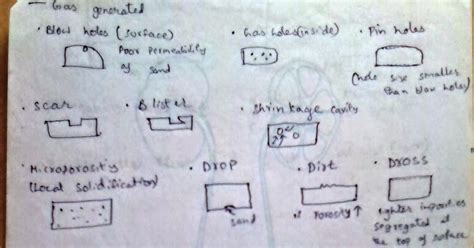 — Gas generated
· Blow holes (surface)
Poor Permeability
of sand
· Gas holes (inside)
· Pin holes
(hole size smaller
than blow holes)
· Scar
· Blister
· Shrinkage cavity
· Microporosity
(Local solidification)
· DROP
sand
· Dirt
Porosity ↑
· DROSS
lighter impurities
segregated at
the top of surface